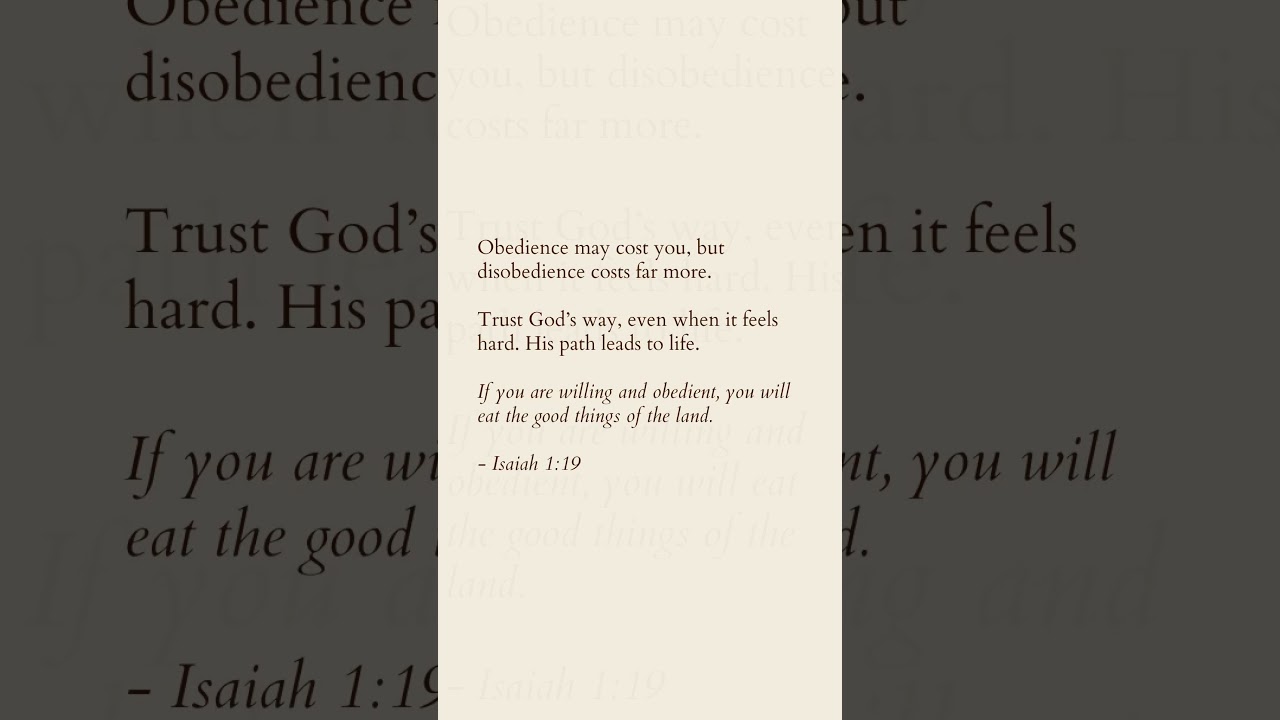 Obedience may cost you, but
disobedience costs far more.
Trust God's way, even when it feels
hard. His path leads to life.
If you are willing and obedient, you will
eat the good things of the land.
- Isaiah 1:19